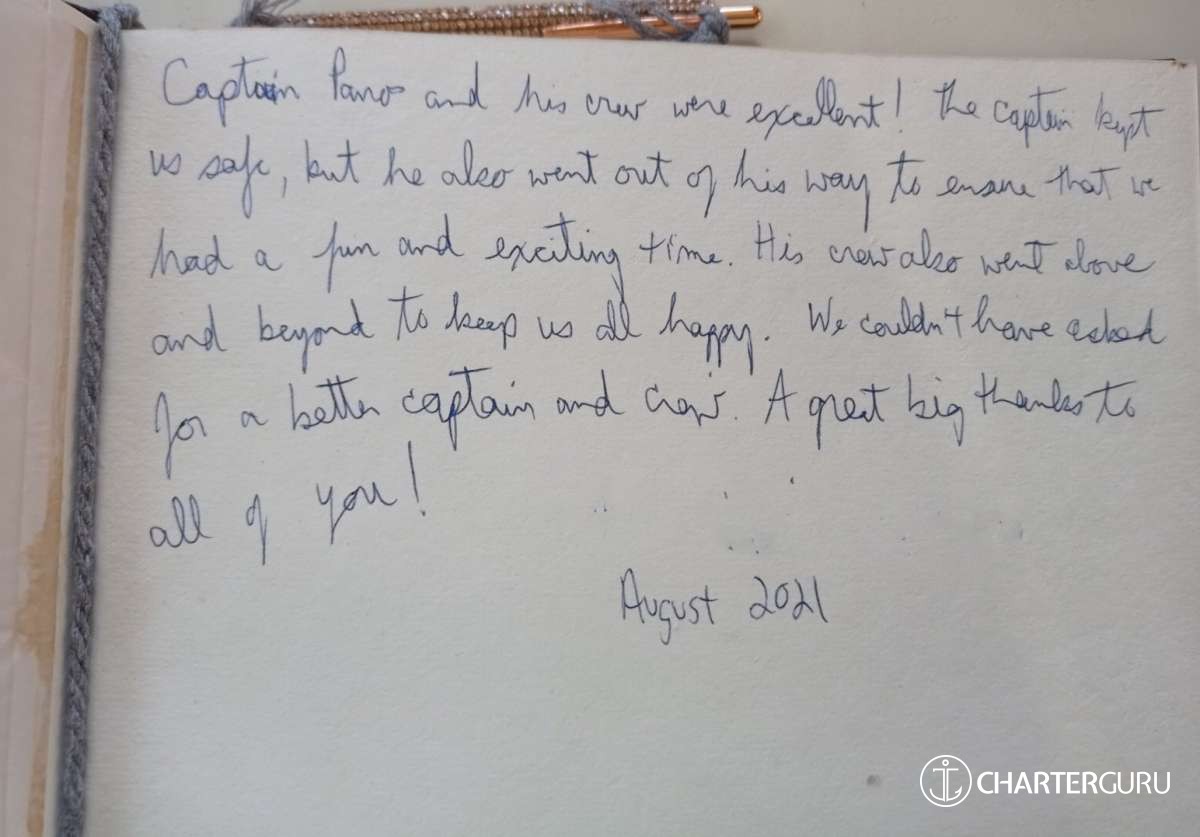 Captain Panos and his crew were excellent! The captain kept
us safe, but he also went out of his way to ensure that we
had a fun and exciting time. His crew also went above
and beyond to keep us all happy. We couldn't have asked
for a better captain and crew. A great big thanks to
all of you!
August 2021
CHARTERGURU